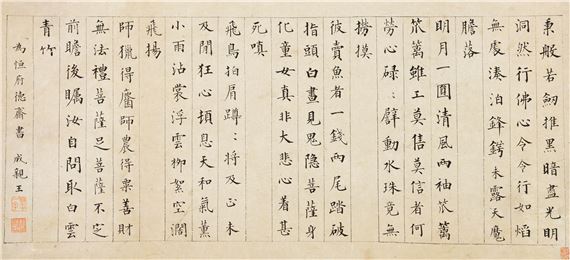 秉般若劒推黑暗盡光明
洞然行佛心令令行如焰
無處湊泊鋒鍔未露天魔
膽落
明月一圓清風兩袖笊籬
笊籬雖工莫售莫信者何
勞心碌〻劈動水珠竟無
撈摸
彼賣魚者一錢兩尾踏破
指頭白晝見鬼隐菩薩身
化童女真非大悲心着甚
死嗔
飛鳥拍肩蹲〻將及正未
及閒狂心頓息天和氣薰
小雨沾裳浮雲柳絮空濶
飛揚
師獵得麕師農得粟善財
無法禮菩薩足菩薩不定
前瞻後矚汝自問取白雲
青竹
為恒府德齋書 成親王